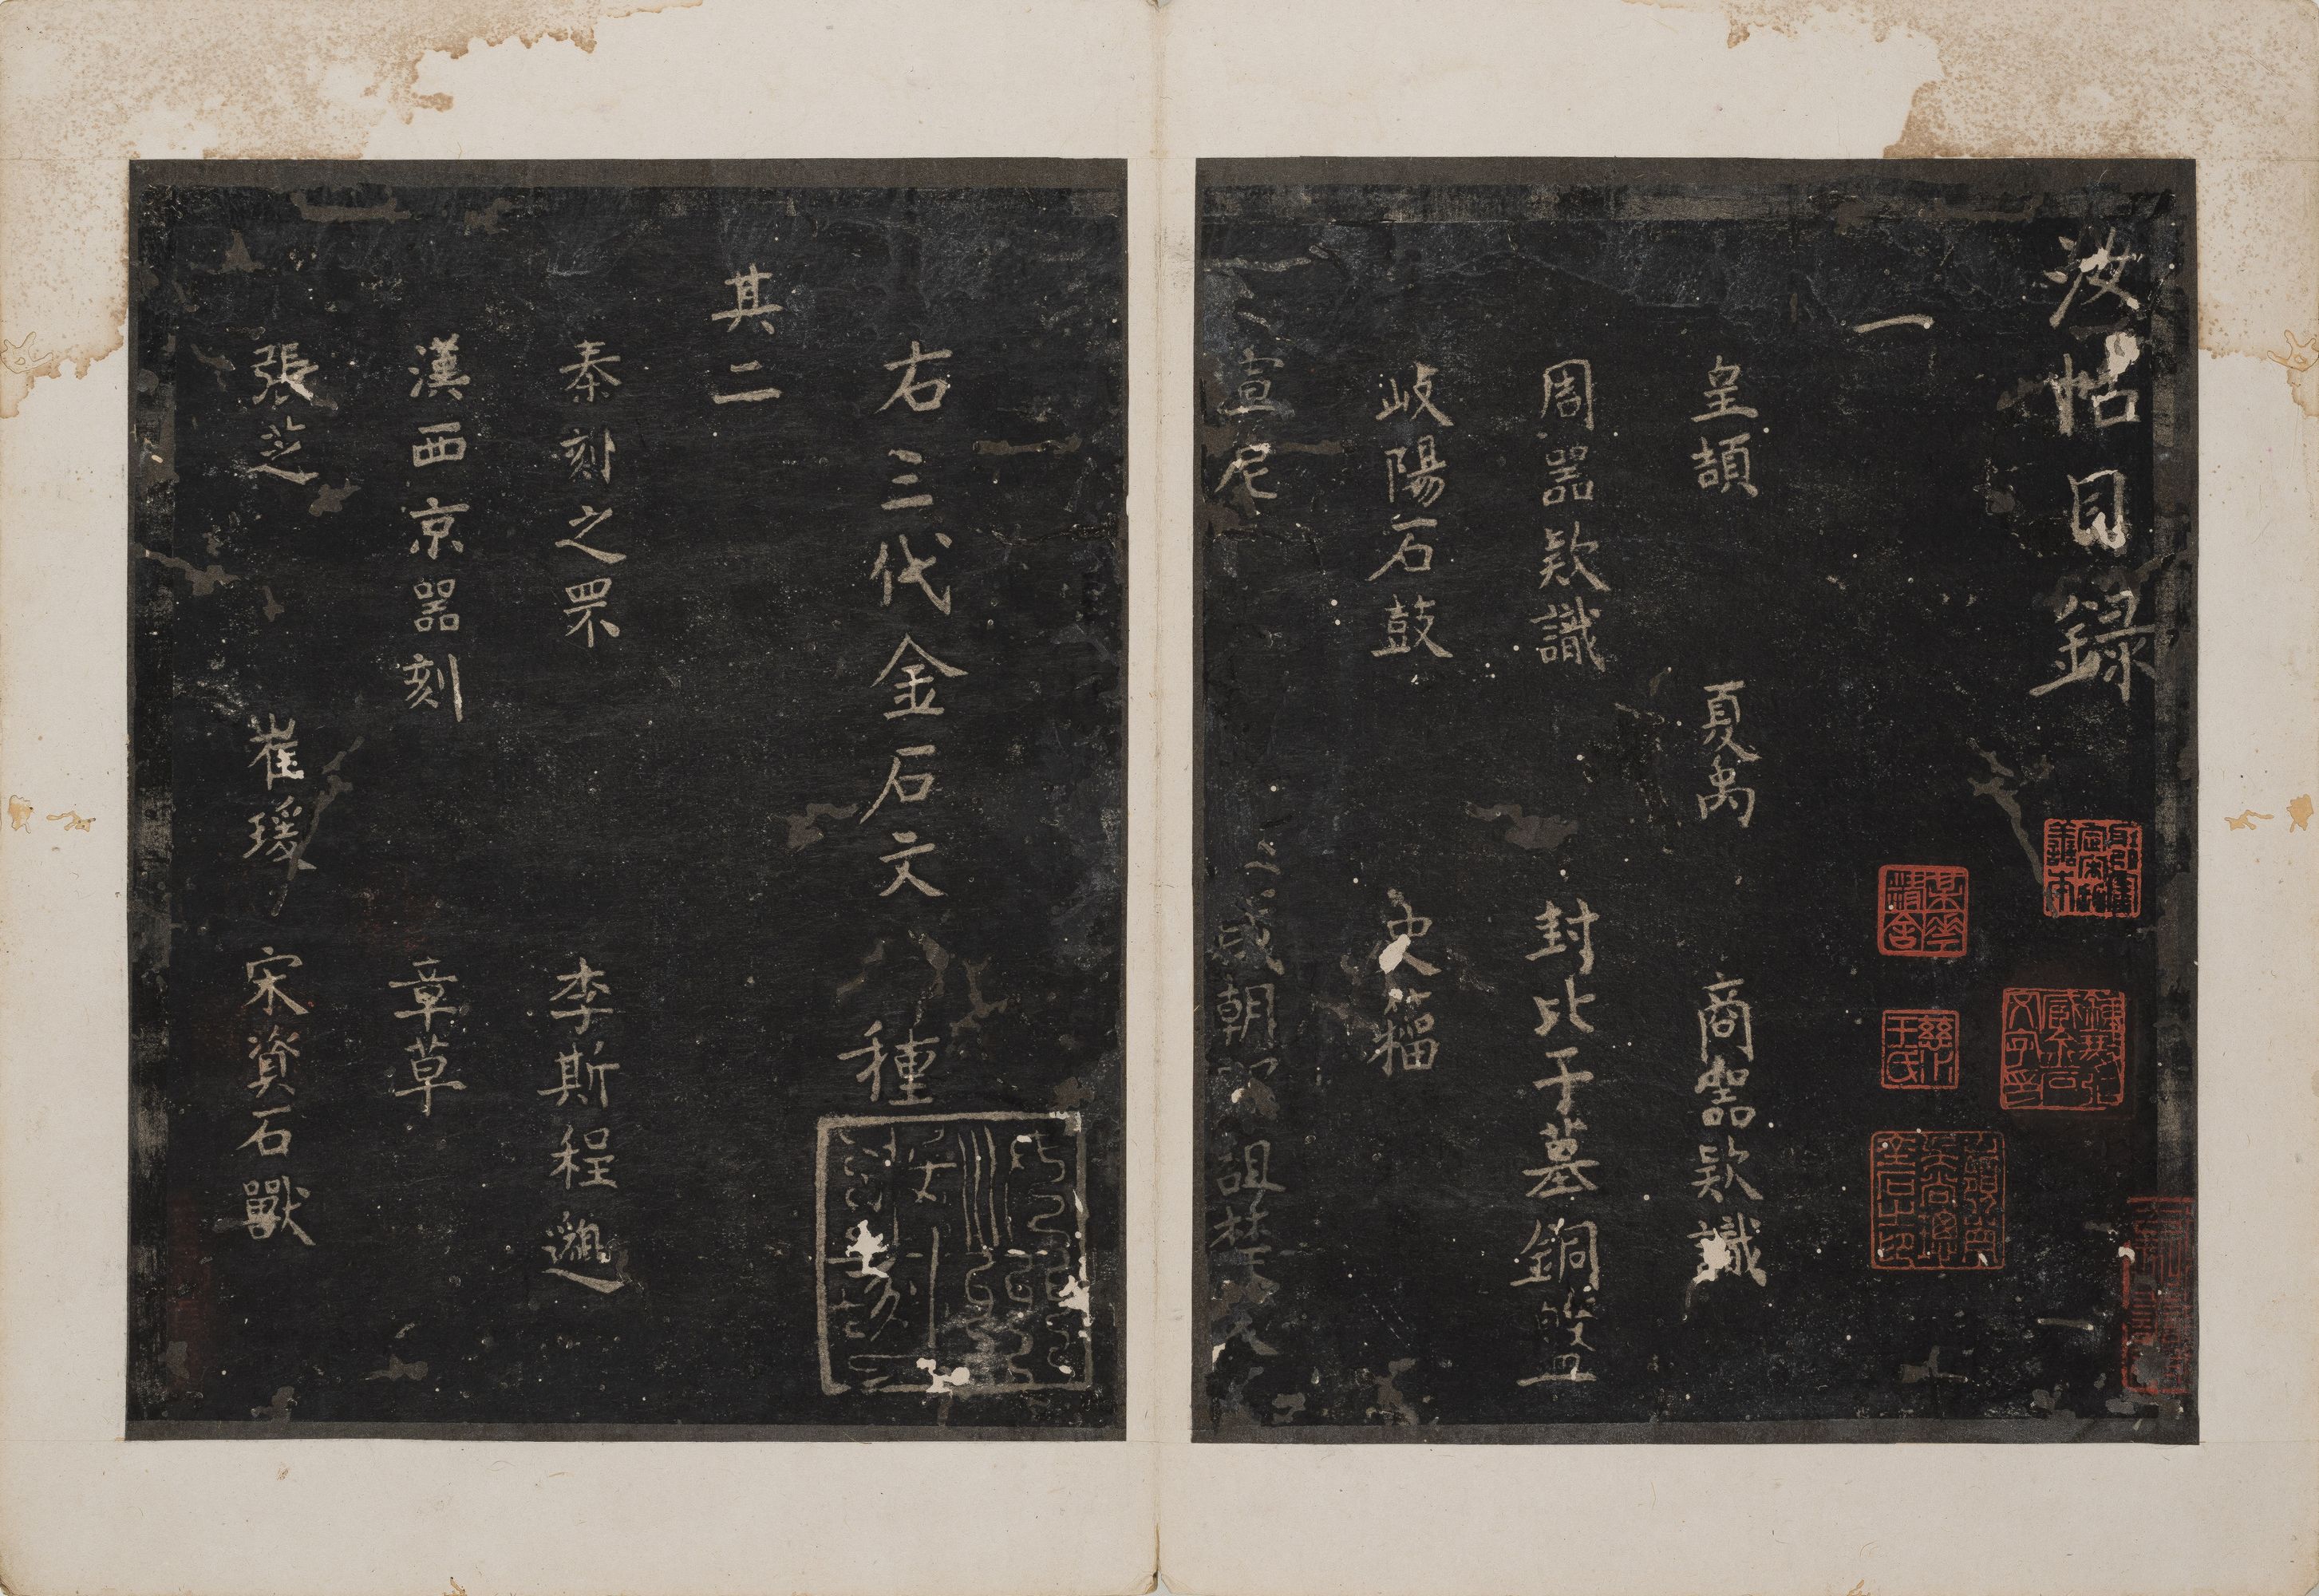 汝帖目錄
一
皇頡 夏禹 商噐欵識
周噐欵識 封比干墓銅盤
岐陽石鼓 史籀
宣尼 朝 詛楚文
右三代金石文八種
其二
秦刻之罘 李斯程邈
漢西京噐刻 章草
張芝 崔瑗 宋資石獸